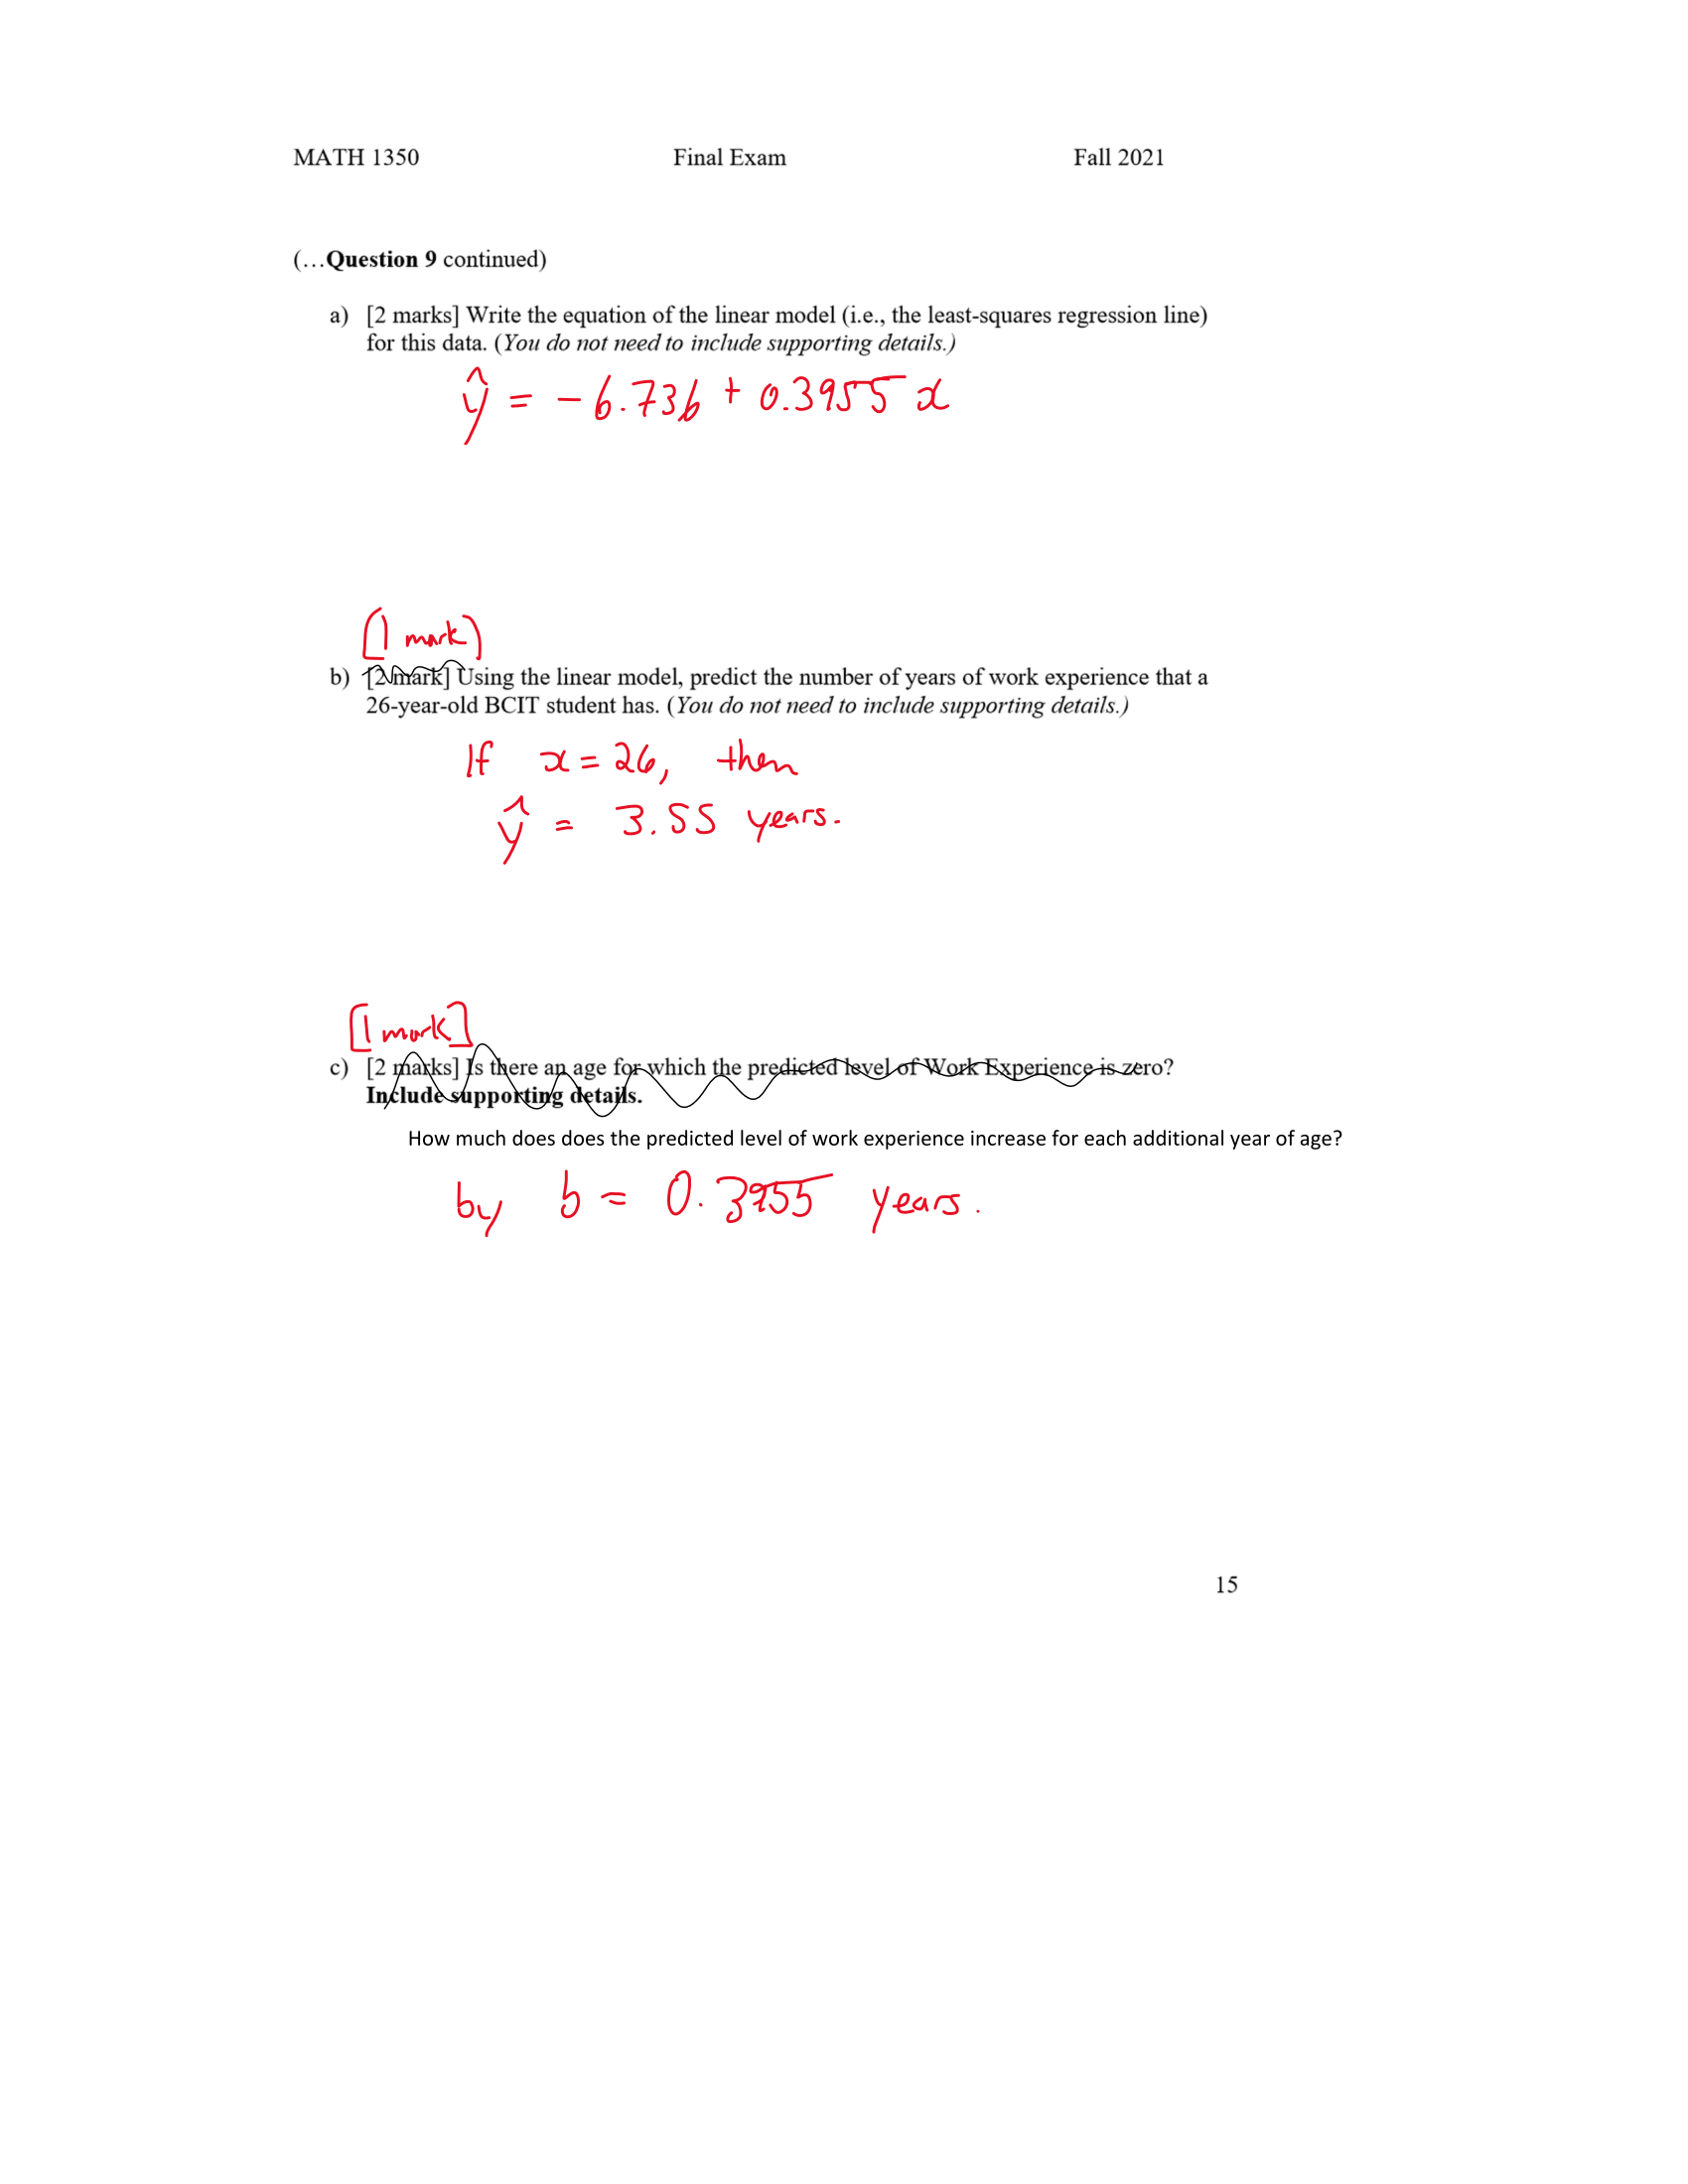 MATH 1350 Final Exam Fall 2021
(…Question 9 continued)
a) [2 marks] Write the equation of the linear model (i.e., the least-squares regression line)
for this data. (You do not need to include supporting details.)
ŷ = -6.736 + 0.3955 x
[1 mark)
b) [2 mark] Using the linear model, predict the number of years of work experience that a
26-year-old BCIT student has. (You do not need to include supporting details.)
If x = 26, then
ŷ = 3.55 years.
[1 mark]
c) [2 marks] Is there an age for which the predicted level of Work Experience is zero?
Include supporting details.
How much does does the predicted level of work experience increase for each additional year of age?
by b = 0.3955 years.
15